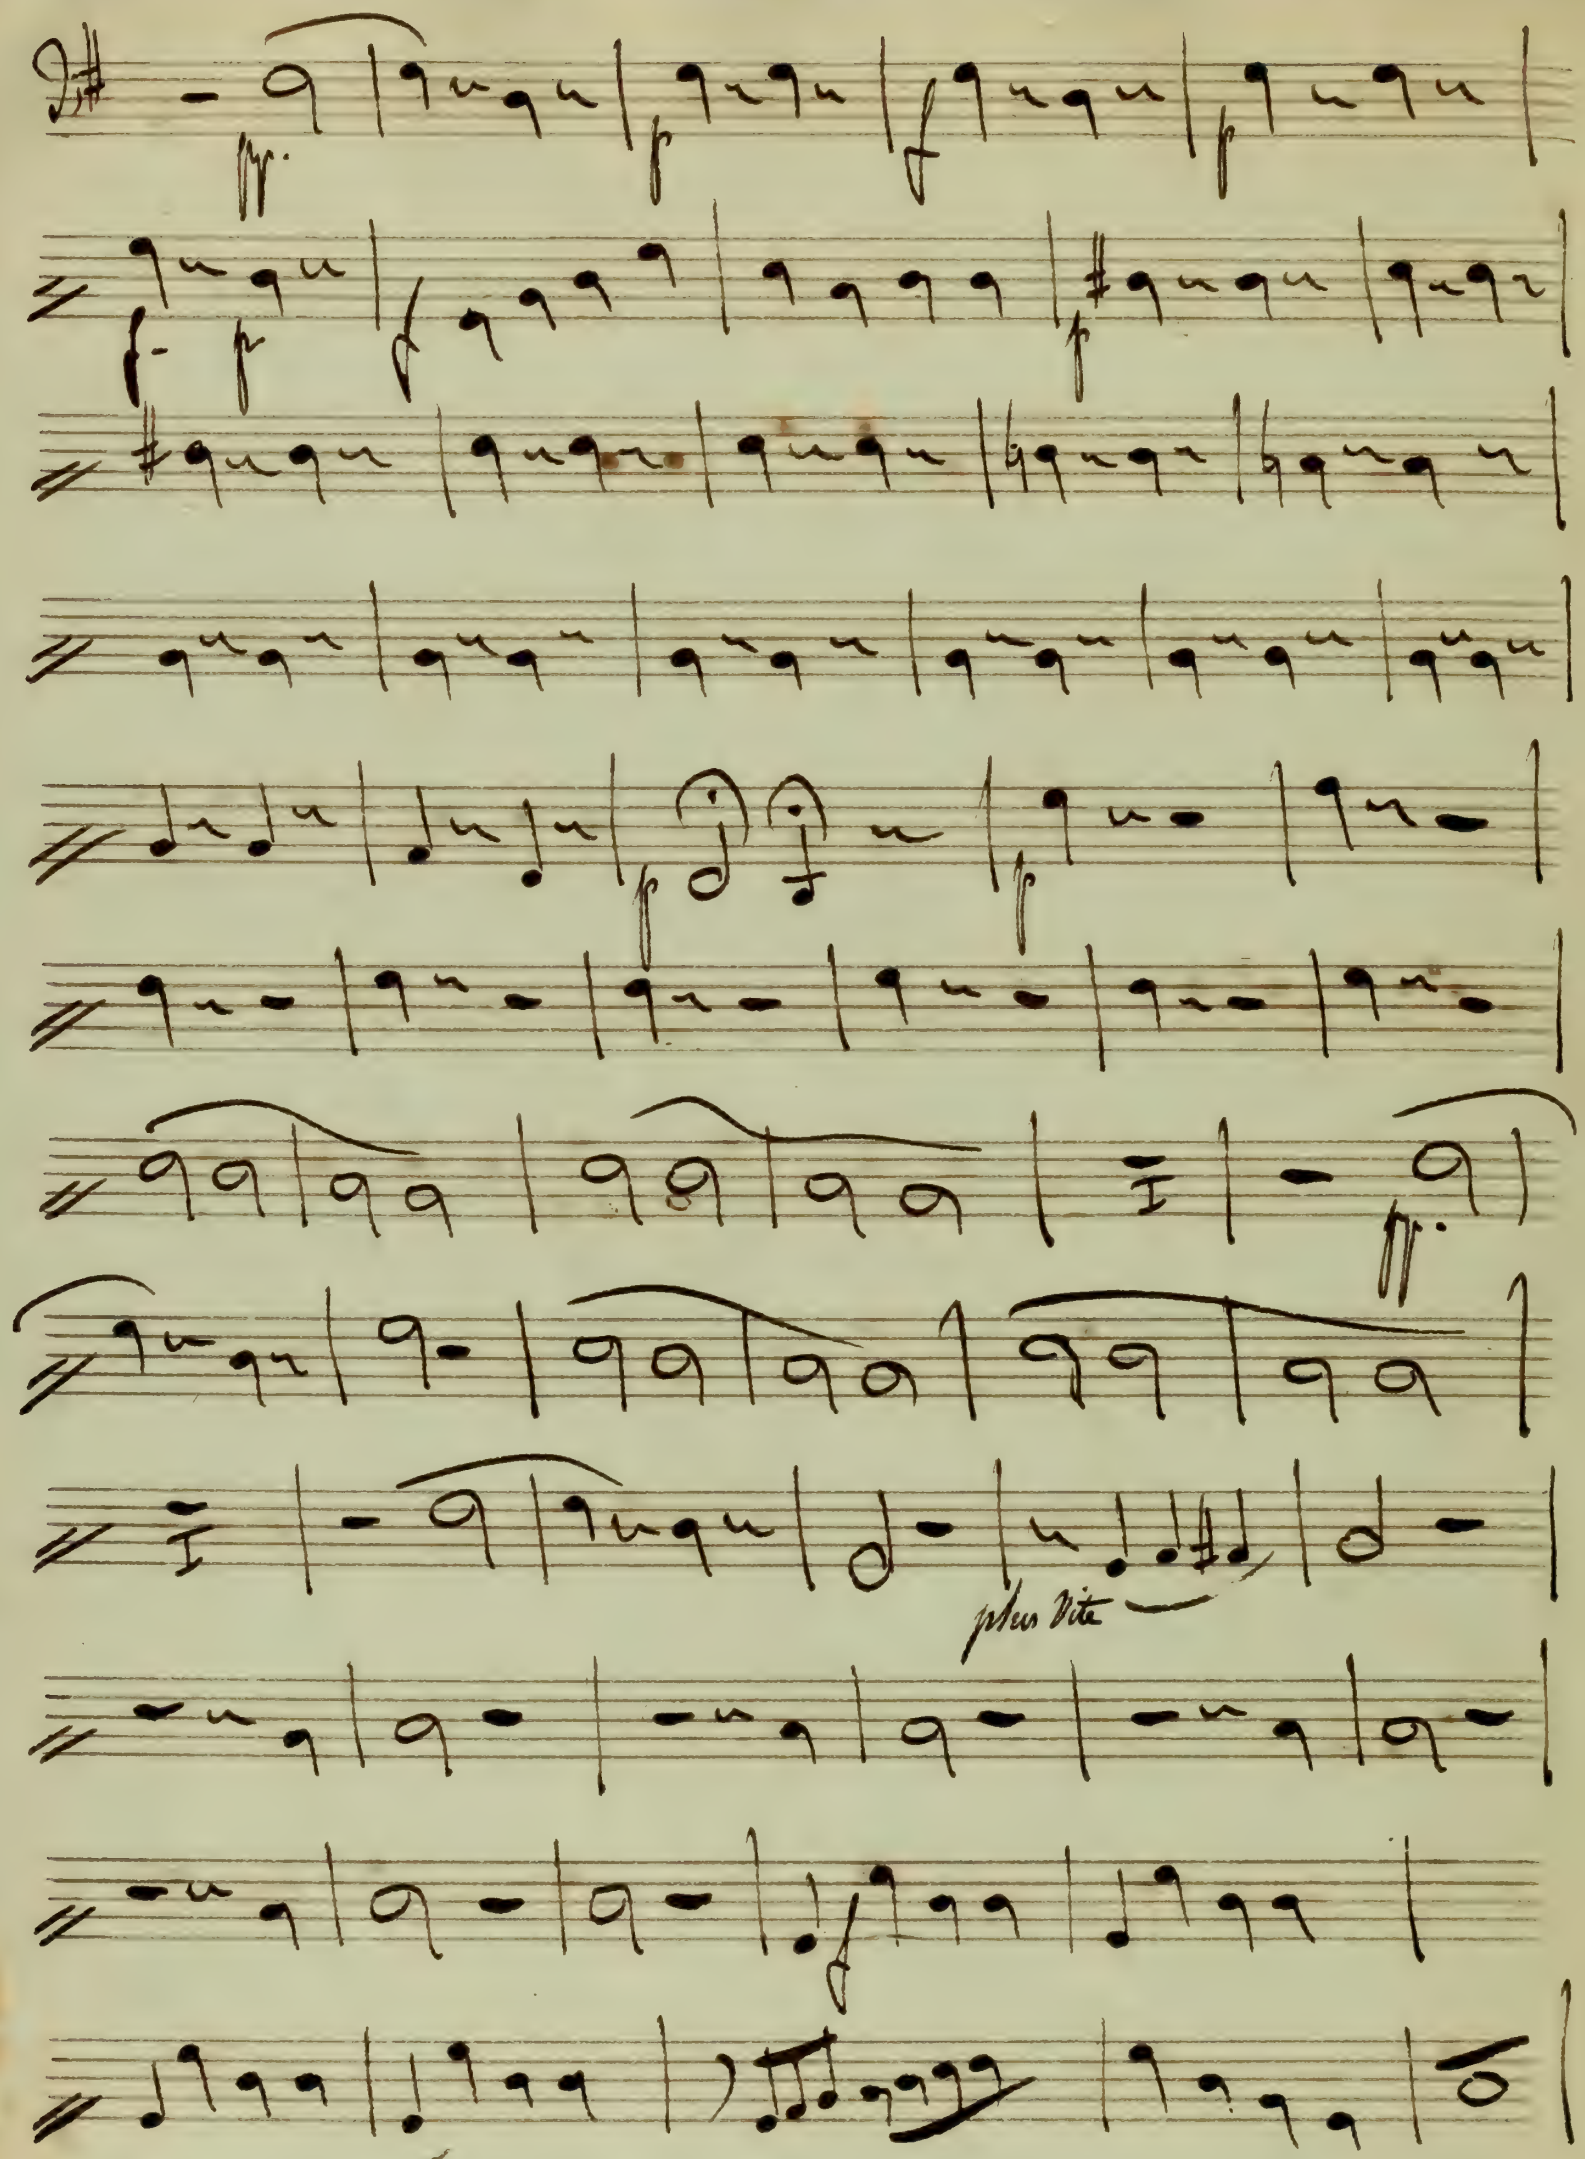 pp. p f p
f p f p
p p
pp.
plus Vite
f